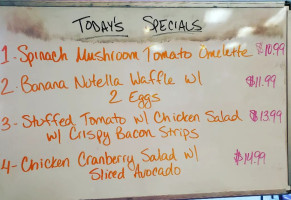 TODAY'S SPECIALS
1- Spinach Mushroom Tomato Omelette $10.99
2- Banana Nutella Waffle w/ $11.99
2 Eggs
3- Stuffed Tomato w/ Chicken Salad $13.99
w/ Crispy Bacon Strips
4- Chicken Cranberry Salad w/ $14.99
Sliced Avocado